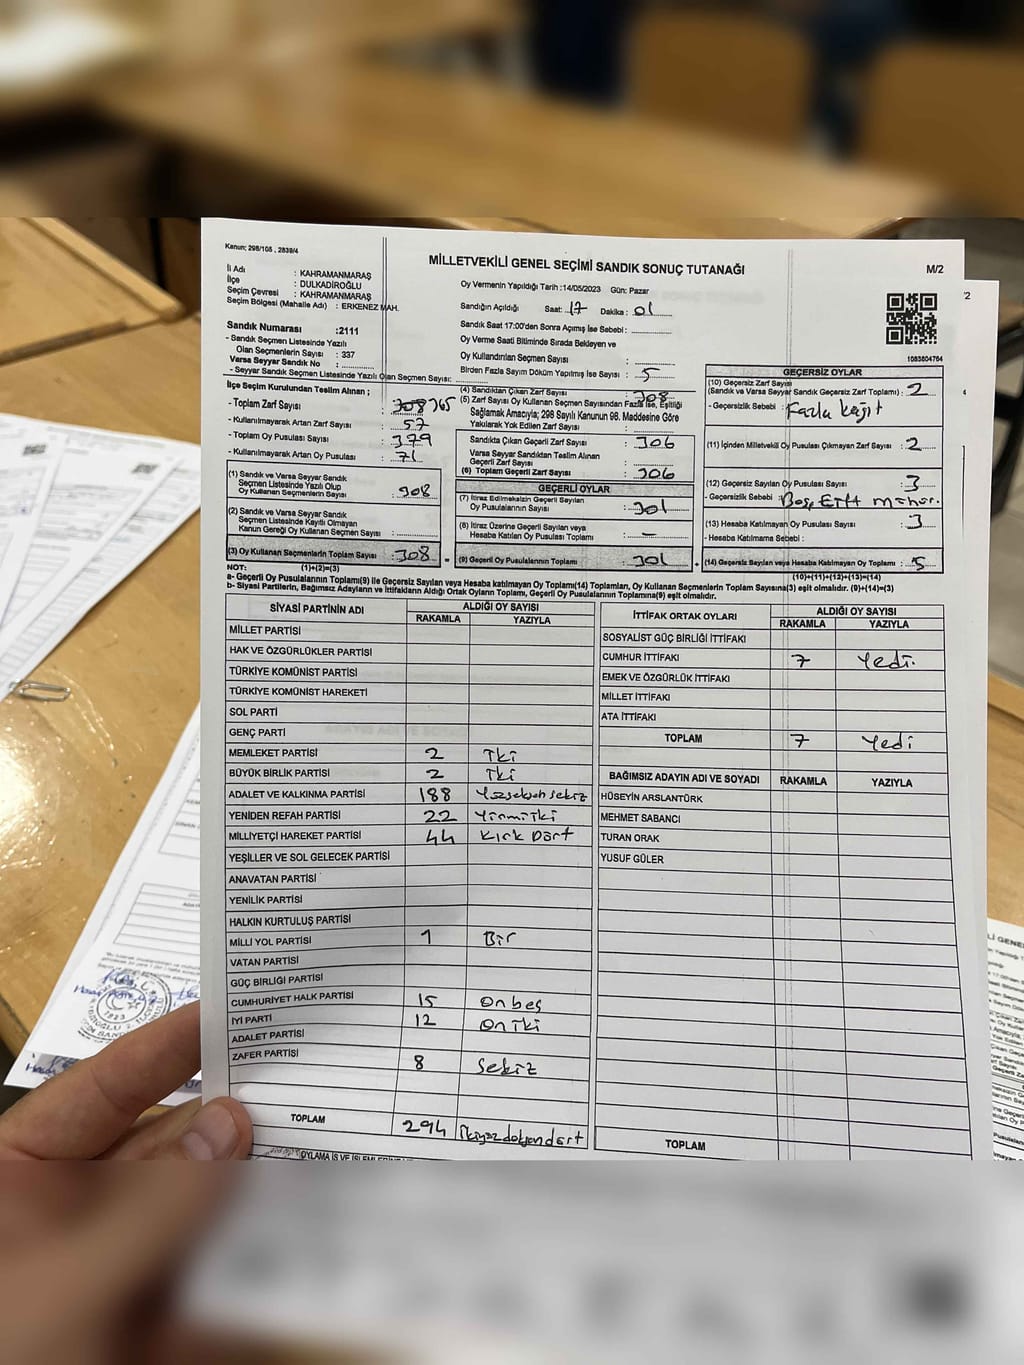 Kanun; 298/105 , 2839/4
MİLLETVEKİLİ GENEL SEÇİMİ SANDIK SONUÇ TUTANAĞI
M/2
İl Adı : KAHRAMANMARAŞ
İlçe : DULKADİROĞLU
Seçim Çevresi : KAHRAMANMARAŞ
Seçim Bölgesi (Mahalle Adı) : ERKENEZ MAH.
Oy Vermenin Yapıldığı Tarih :14/05/2023 Gün: Pazar
Sandığın Açıldığı Saat: 17 Dakika: 01
Sandık Saat 17:00'den Sonra Açımış İse Sebebi:
Oy Verme Saati Bitiminde Sırada Bekleyen ve
Oy Kullandırılan Seçmen Sayısı :
Birden Fazla Sayım Döküm Yapılmış İse Sayısı : 5
1083804764
Sandık Numarası :2111
- Sandık Seçmen Listesinde Yazılı
Olan Seçmenlerin Sayısı : 337
Varsa Seyyar Sandık No :
- Seyyar Sandık Seçmen Listesinde Yazılı Olan Seçmen Sayısı:
İlçe Seçim Kurulundan Teslim Alınan ;
- Toplam Zarf Sayısı : 365
- Kullanılmayarak Artan Zarf Sayısı : 57
- Toplam Oy Pusulası Sayısı : 379
- Kullanılmayarak Artan Oy Pusulası : 71
(1) Sandık ve Varsa Seyyar Sandık
Seçmen Listesinde Yazılı Olup
Oy Kullanan Seçmenlerin Sayısı : 308
(2) Sandık ve Varsa Seyyar Sandık
Seçmen Listesinde Kayıtlı Olmayan
Kanun Gereği Oy Kullanan Seçmen Sayısı :
(3) Oy Kullanan Seçmenlerin Toplam Sayısı : 308
(4) Sandıktan Çıkan Zarf Sayısı : 308
(5) Zarf Sayısı Oy Kullanan Seçmen Sayısından Fazla İse, Eşitliği
Sağlamak Amacıyla; 298 Sayılı Kanunun 98. Maddesine Göre
Yakılarak Yok Edilen Zarf Sayısı :
Sandıkta Çıkan Geçerli Zarf Sayısı : 306
Varsa Seyyar Sandıktan Teslim Alınan
Geçerli Zarf Sayısı :
(6) Toplam Geçerli Zarf Sayısı : 306
GEÇERLİ OYLAR
(7) İtiraz Edilmeksizin Geçerli Sayılan
Oy Pusulalarının Sayısı : 301
(8) İtiraz Üzerine Geçerli Sayılan veya
Hesaba Katılan Oy Pusulası Toplamı : -
(9) Geçerli Oy Pusulalarının Toplamı : 301
GEÇERSİZ OYLAR
(10) Geçersiz Zarf Sayısı
(Sandık ve Varsa Seyyar Sandık Geçersiz Zarf Toplamı) : 2
- Geçersizlik Sebebi : Fazla kağıt
(11) İçinden Milletvekili Oy Pusulası Çıkmayan Zarf Sayısı : 2
(12) Geçersiz Sayılan Oy Pusulası Sayısı : 3
- Geçersizlik Sebebi : Boş
(13) Hesaba Katılmayan Oy Pusulası Sayısı : 3
- Hesaba Katılmama Sebebi :
(14) Geçersiz Sayılan veya Hesaba Katılmayan Oy Toplamı : 5
NOT: (1)+(2)=(3) (10)+(11)+(12)+(13)=(14)
a- Geçerli Oy Pusulalarının Toplamı(9) ile Geçersiz Sayılan veya Hesaba katılmayan Oy Toplamı(14) Toplamları, Oy Kullanan Seçmenlerin Toplam Sayısına(3) eşit olmalıdır. (9)+(14)=(3)
b- Siyasi Partilerin, Bağımsız Adayların ve İttifakların Aldığı Ortak Oyların Toplamı, Geçerli Oy Pusulalarının Toplamına(9) eşit olmalıdır.
SİYASİ PARTİNİN ADI ALDIĞI OY SAYISI
RAKAMLA YAZIYLA
MİLLET PARTİSİ
HAK VE ÖZGÜRLÜKLER PARTİSİ
TÜRKİYE KOMÜNİST PARTİSİ
TÜRKİYE KOMÜNİST HAREKETİ
SOL PARTİ
GENÇ PARTİ
MEMLEKET PARTİSİ 2 İki
BÜYÜK BİRLİK PARTİSİ 2 İki
ADALET VE KALKINMA PARTİSİ 188 Yüzseksen sekiz
YENİDEN REFAH PARTİSİ 22 Yirmi iki
MİLLİYETÇİ HAREKET PARTİSİ 44 Kırk Dört
YEŞİLLER VE SOL GELECEK PARTİSİ
ANAVATAN PARTİSİ
YENİLİK PARTİSİ
HALKIN KURTULUŞ PARTİSİ
MİLLİ YOL PARTİSİ 1 Bir
VATAN PARTİSİ
GÜÇ BİRLİĞİ PARTİSİ
CUMHURİYET HALK PARTİSİ 15 on beş
İYİ PARTİ 12 on iki
ADALET PARTİSİ
ZAFER PARTİSİ 8 sekiz
TOPLAM 294 ikiyüzdoksandört
İTTİFAK ORTAK OYLARI ALDIĞI OY SAYISI
RAKAMLA YAZIYLA
SOSYALİST GÜÇ BİRLİĞİ İTTİFAKI
CUMHUR İTTİFAKI 7 Yedi
EMEK VE ÖZGÜRLÜK İTTİFAKI
MİLLET İTTİFAKI
ATA İTTİFAKI
TOPLAM 7 Yedi
BAĞIMSIZ ADAYIN ADI VE SOYADI RAKAMLA YAZIYLA
HÜSEYİN ARSLANTÜRK
MEHMET SABANCI
TURAN ORAK
YUSUF GÜLER
TOPLAM